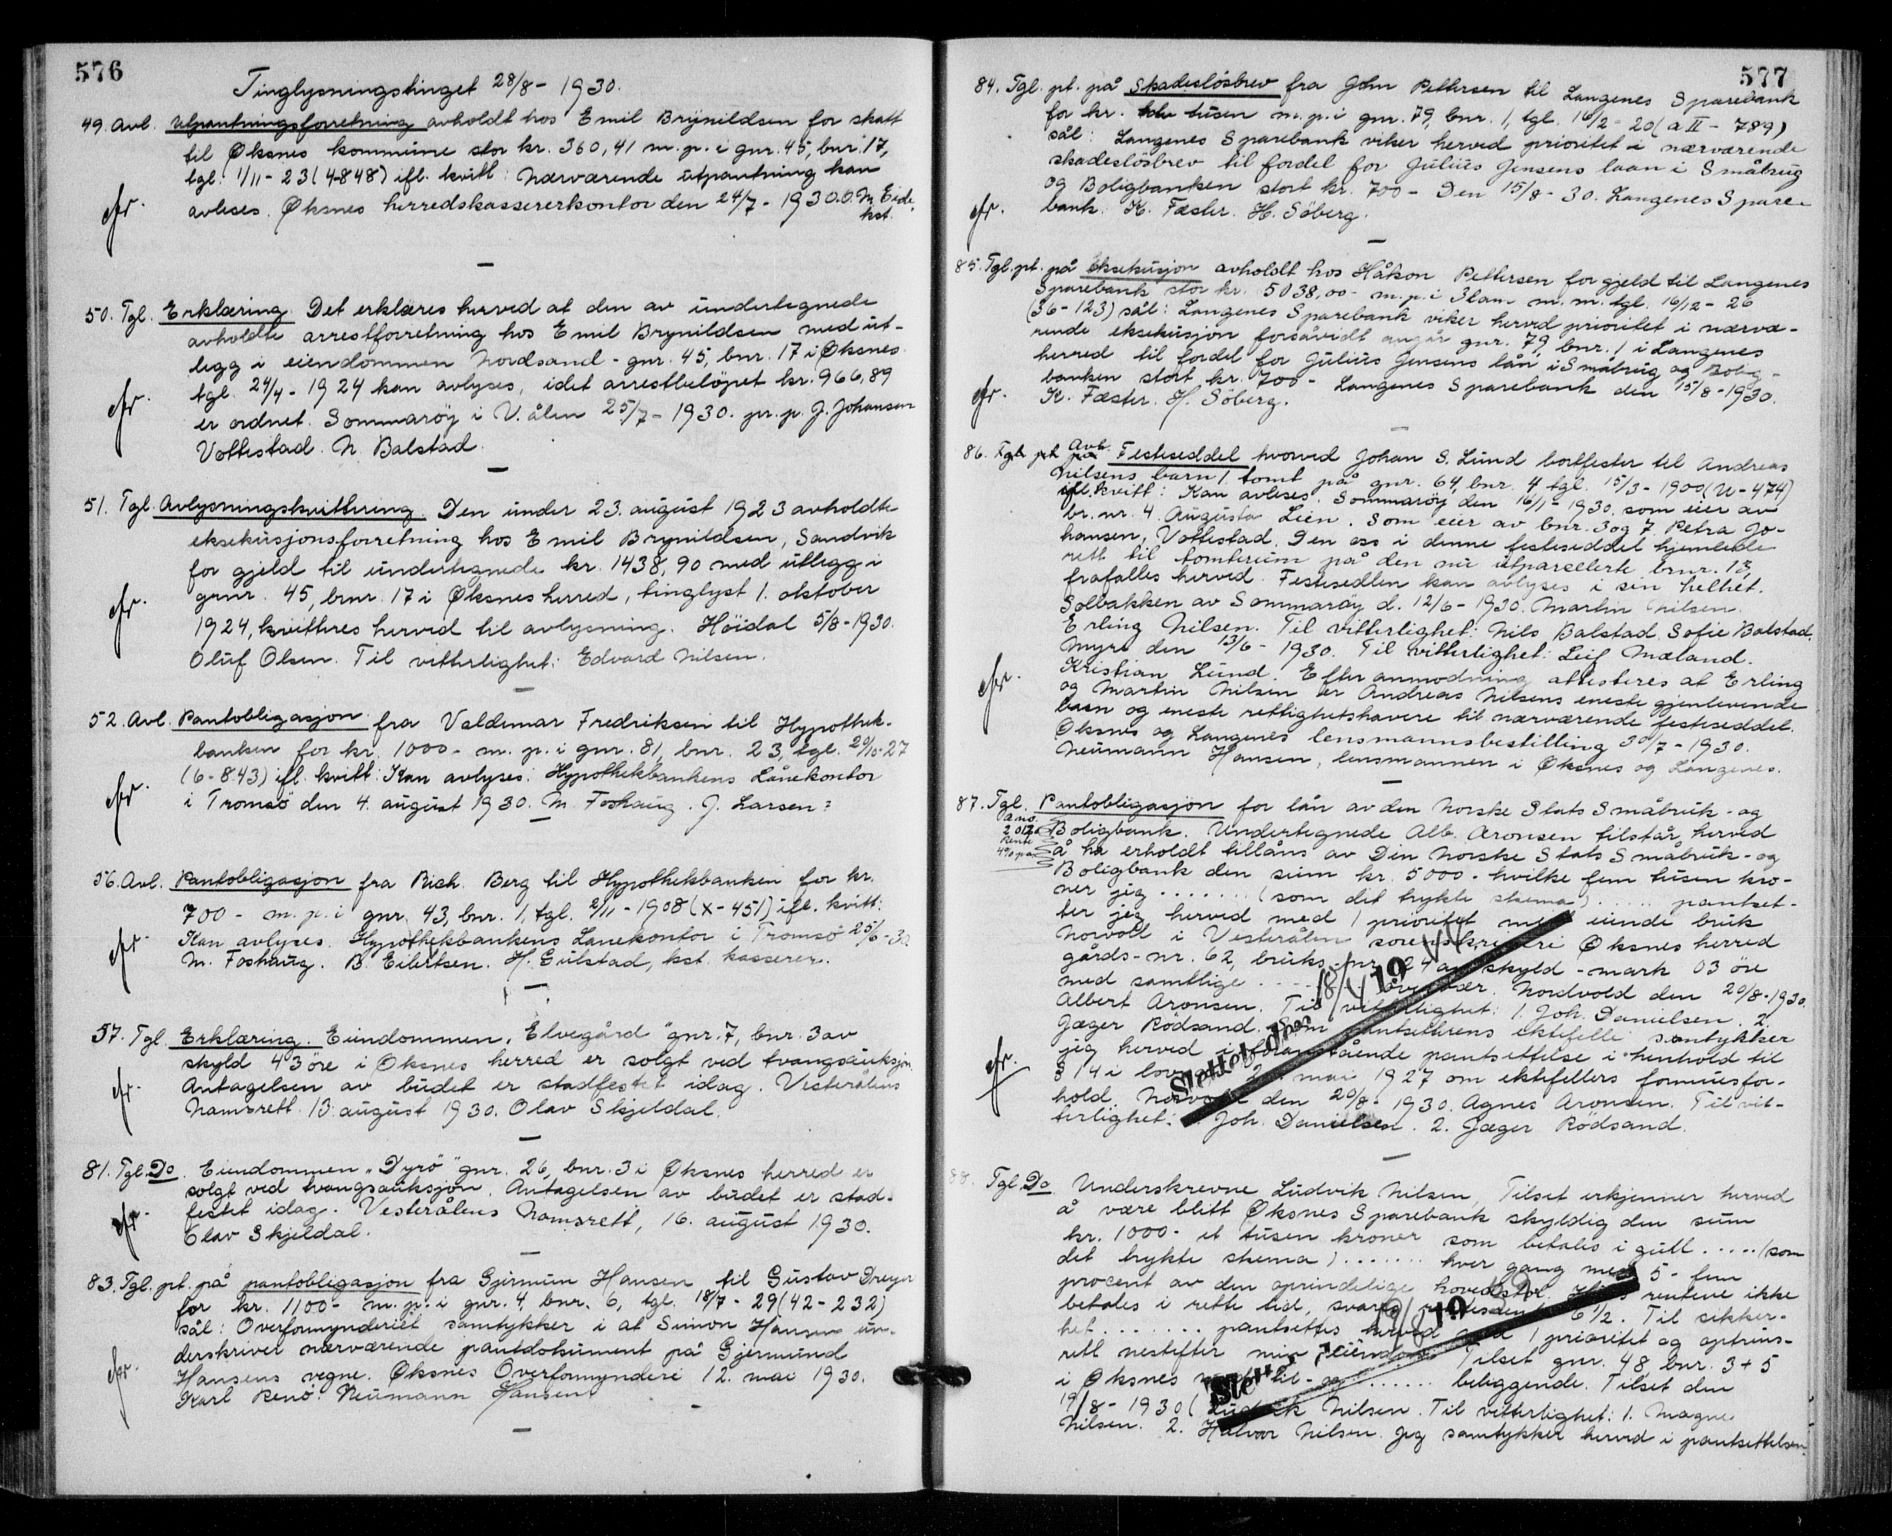 576
Tinglysningstinget 28/8 - 1930.
49. Avl. Utpantningsforretning avholdt hos Emil Brynildsen for skatt
til Øksnes kommune stor kr. 360,41 m. p. i gnr. 45, bnr. 17,
tgl. 1/11 - 23 (4-848) ifl. kvitt: Nærværende utpantning kan
avleses. Øksnes herredskassererkontor den 24/7 - 1930. O. M. Eide
kst.
50. Tgl. Erklæring. Det erklæres herved at den av undertegnede
avholdte arrestforretning hos Emil Brynildsen med ut-
legg i eiendommen Nordsand - gnr. 45, bnr. 17 i Øksnes
tgl. 24/4 - 1924 kan avlyses, idet arrestbeløpet kr. 966,89
er ordnet. Sommarøy i V.ålen 25/7 - 1930. pr. p. J. Johansen
Vottestad. N. Balstad.
51. Tgl. Avlysningskvittering. Den under 23. august 1923 avholdte
eksekusjonsforretning hos Emil Brynildsen, Sandvik
for gjeld til undertegnede kr. 1438,90 med utlegg i
grnr. 45, brnr. 17 i Øksnes herred, tinglyst 1. oktober
1924, kvitteres herved til avlysning. Höidal 5/8 - 1930.
Oluf Olsen. Til vitterlighet: Edvard Nilsen.
52. Avl. Pantobligasjon fra Valdemar Fredriksen til Hypothek-
banken for kr. 1000 - m. p. i gnr. 81, bnr. 23, tgl. 29/10-27
(6-843) ifl. kvitt: Kan avlyses: Hypothekbankens Lånekontor
i Tromsö den 4. august 1930. M. Foshaug. J. Larsen:
56. Avl. Pantobligasjon fra Rich. Berg til Hypothekbanken for kr.
700 - m. p. i gnr. 43, bnr. 1, tgl. 2/11 - 1908 (X-451) ifl. kvitt:
Kan avlyses. Hypothekbankens Lånekontor i Tromsö 25/6 - 30
M. Foshaug. B. Eilertsen. H. Gulstad, kst. kasserer.
57. Tgl. Erklæring. Eiendommen „Elvegård" gnr. 7, bnr. 3 av
skyld 43 öre i Øksnes herred er solgt ved tvangsauksjon.
Antagelsen av budet er stadfestet idag. Vesterålens
Namsrett 13. august 1930. Olav Skjeldal.
81. Tgl. Do. Eiendommen „Dyrö" gnr. 26, bnr. 3 i Øksnes herred er
solgt ved tvangsauksjon. Antagelsen av budet er stad-
festet idag. Vesterålens Namsrett, 16. august 1930.
Olav Skjeldal.
83. Tgl. pt. på pantobligasjon fra Gjermun Hansen til Gustav Dreyer
for kr. 1100 - m. p. i gnr. 4, bnr. 6, tgl. 18/7 - 29 (42-232)
sål: Overformynderiet samtykker i at Simon Hansen un-
derskriver nærværende pantdokument på Gjermund
Hansens vegne. Øksnes Overformynderi 12. mai 1930.
Karl Renö. Neumann Hansen
577
84. Tgl. pt. på Skadeslösbrev fra John Pettersen til Langenes Sparebank
for kr. tolv tusen m. p. i gnr. 79, bnr. 1, tgl. 16/2 - 20 (a II - 789)
sål: Langenes Sparebank viker herved prioritet i nærværende
skadeslösbrev til fordel for Julius Jensens laan i Småbrug
og Boligbanken stort kr. 700 - Den 15/8 - 30. Langenes Spare-
bank. K. Fæster. H. Söberg.
85. Tgl. pt. på Eksekusjon avholdt hos Håkon Pettersen for gjeld til Langenes
Sparebank stor kr. 5038,00 - m. p. i 3 lam m. m. tgl. 16/12 - 26
(36-123) sål: Langenes Sparebank viker herved prioritet i nærvæ-
rende eksekusjon forsåvidt angår gnr. 79, bnr. 1 i Langenes
herred til fordel for Julius Jensens lån i Småbrug og Bolig-
banken stort kr. 700 - Langenes Sparebank den 15/8 - 1930.
K. Fæster. H. Söberg.
86. Tgl. pt. på Avl. Festeseddel hvorved Johan S. Lund bortfester til Andreas
Nilsens barn 1 tomt på gnr. 64, bnr. 4 tgl. 15/3 - 1900 (U-474)
ifl. kvitt: Kan avleses. Sommarøy den 16/1 - 1930. som eier av
br. nr. 4. Augusta Lien. Som eier av bnr. 3 og 7. Petra Jo-
hansen, Vottestad. Den oss i denne festeseddel hjemlede
rett til tomterum på den nu utparsellerte brnr. 13,
frafalles herved. Festesedlen kan avlyses i sin helhet.
Solbakken av Sommarøy d. 12/6 - 1930. Martin Nilsen.
Erling Nilsen. Til vitterlighet: Nils Balstad. Sofie Balstad.
Myre den 13/6 - 1930. Til vitterlighet: Leif Mæland.
Kristian Lund. Efter anmodning attesteres at Erling
og Martin Nilsen er Andreas Nilsens eneste gjenlevende
barn og eneste rettighetshavere til nærværende festeseddel.
Øksnes og Langenes lensmannsbestilling 30/7 - 1930.
Neumann Hansen, lensmannen i Øksnes og Langenes.
87. Tgl. Pantobligasjon for lån av den Norske Stats Småbruk - og
Boligbank. Undertegnede Alb. Aronsen tilstår herved
å ha erholdt tillåns av Den Norske Stats Småbruk - og
Boligbank den sum kr. 5000 - hvilke fem tusen kro-
ner jeg ....... (som det trykte skema) ..... pantset-
ter jeg herved med 1 prioritet mitt eiende bruk
Norvoll i Vesterålen sorenskriveri Øksnes herred
gårds-nr. 62, bruks-nr. 24 av skyld - mark 03 öre
med samtlige .... Nordvold den 20/8 - 1930
Albert Aronsen. Til vitterlighet: 1. Joh. Danielsen. 2.
Jæger Rödsand. Som pantsetterens ektefelle samtykker
jeg herved i foranstående pantsettelse i henhold til
§ 14 i lov mai 1927 om ektefellers formuesfor-
hold. Norvoll den 20/8 - 1930. Agnes Aronsen. Til vit-
terlighet: Joh. Danielsen. 2. Jæger Rödsand.
Slettet den 18/ 19
88. Tgl. Do. Underskrevne Ludvik Nilsen, Tilset erkjenner herved
å være blitt Øksnes Sparebank skyldig den sum
kr. 1000 - et tusen kroner som betales i gull ..... (som
det trykte skema) ....... hver gang med 5 - fem
procent av den oprindelige hovedstol. renterne ikke
betales i rette tid, svares 6 1/2. Til sikker-
het ....... pantsettes herved med 1 prioritet og optrins-
rett nestefter min eiendom Tilset gnr. 48 bnr. 3 + 5
i Øksnes med til - og ....... beliggende. Tilset den
19/8 - 1930 (Ludvik Nilsen. Til vitterlighet: 1. Magne
Nilsen. 2. Halvar Nilsen. Jeg samtykker herved i pantsettelsen.